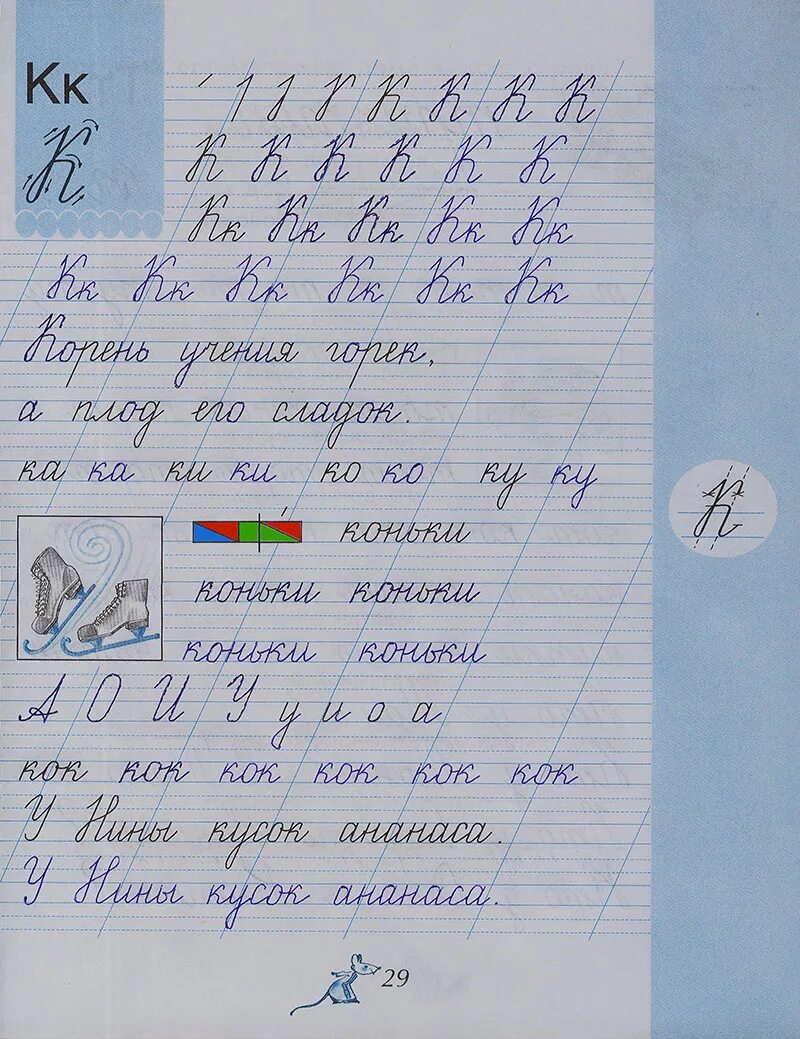 Кк
К К К К
К
К К К К К К
Кк Кк Кк Кк Кк
Кк Кк Кк Кк Кк Кк
Корень учения горек,
а плод его сладок.
ка ка ки ки ко ко ку ку
К
коньки
коньки коньки
коньки коньки
А О И У у и о а
кок кок кок кок кок кок
У Нины кусок ананаса.
У Нины кусок ананаса.
29